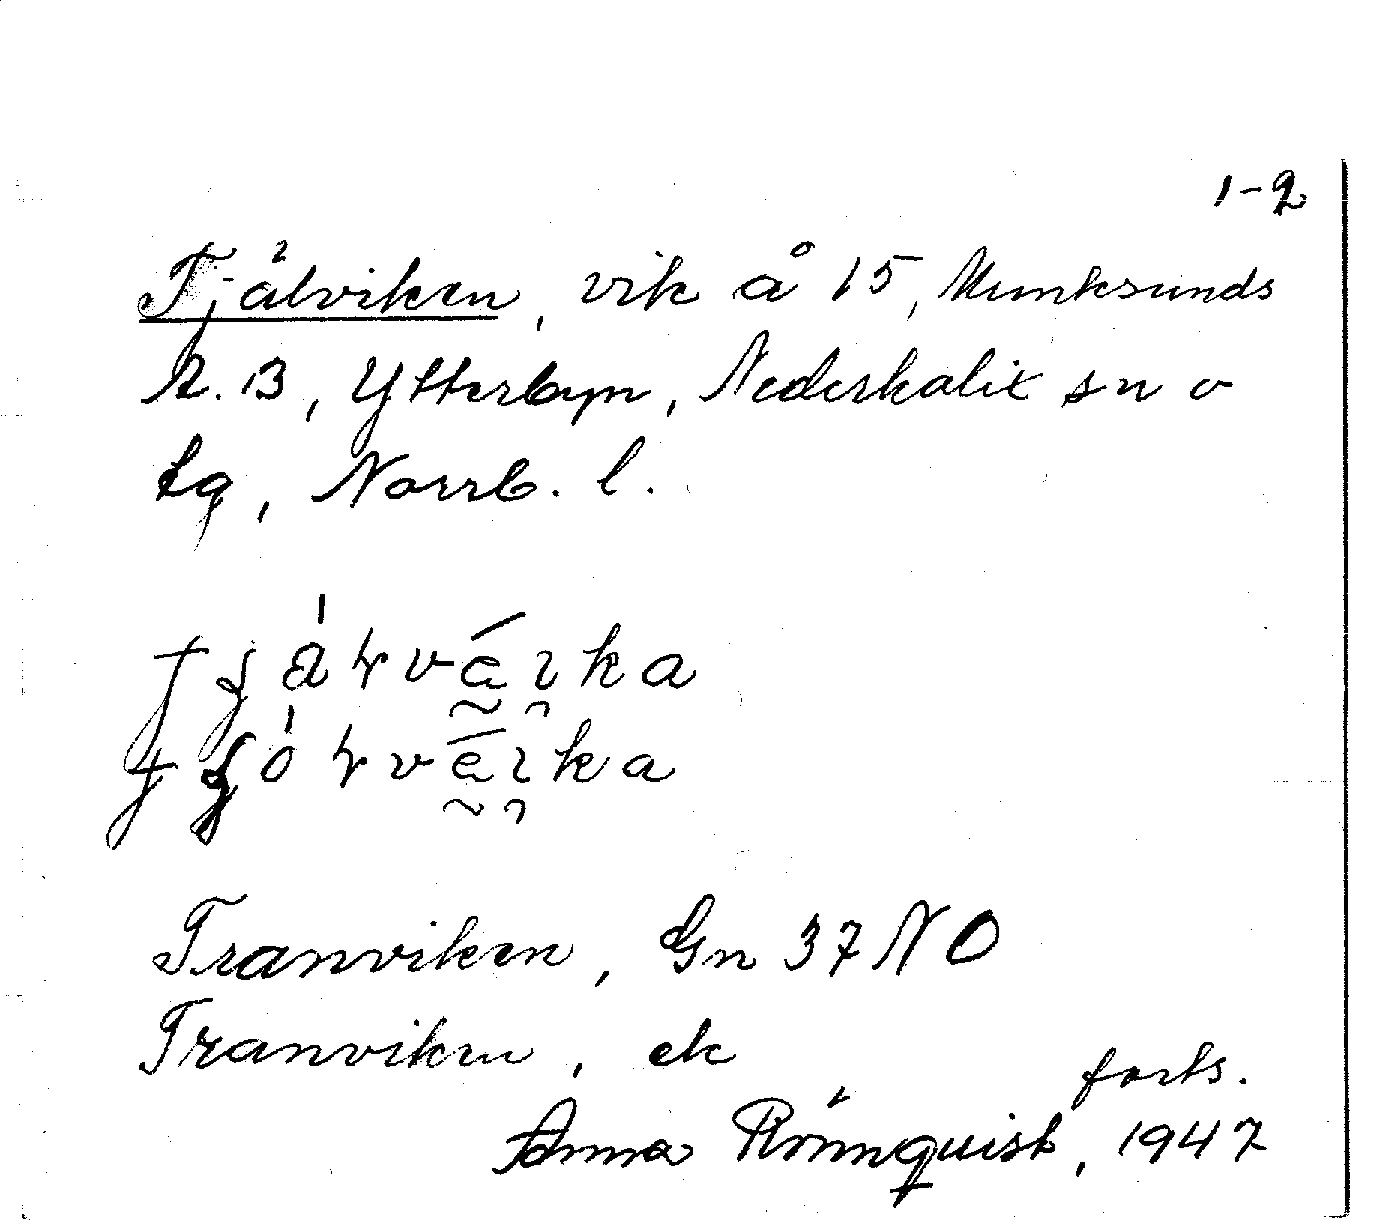 1-2
Tjälviken, vik å 15, Munksunds
A.B, Ytterbyn, Nederkalix sn o
tg, Norrb. l.
Tranviken, Gn 37 NO
Tranviken, ek
forts.
Anna Rönnquist, 1947